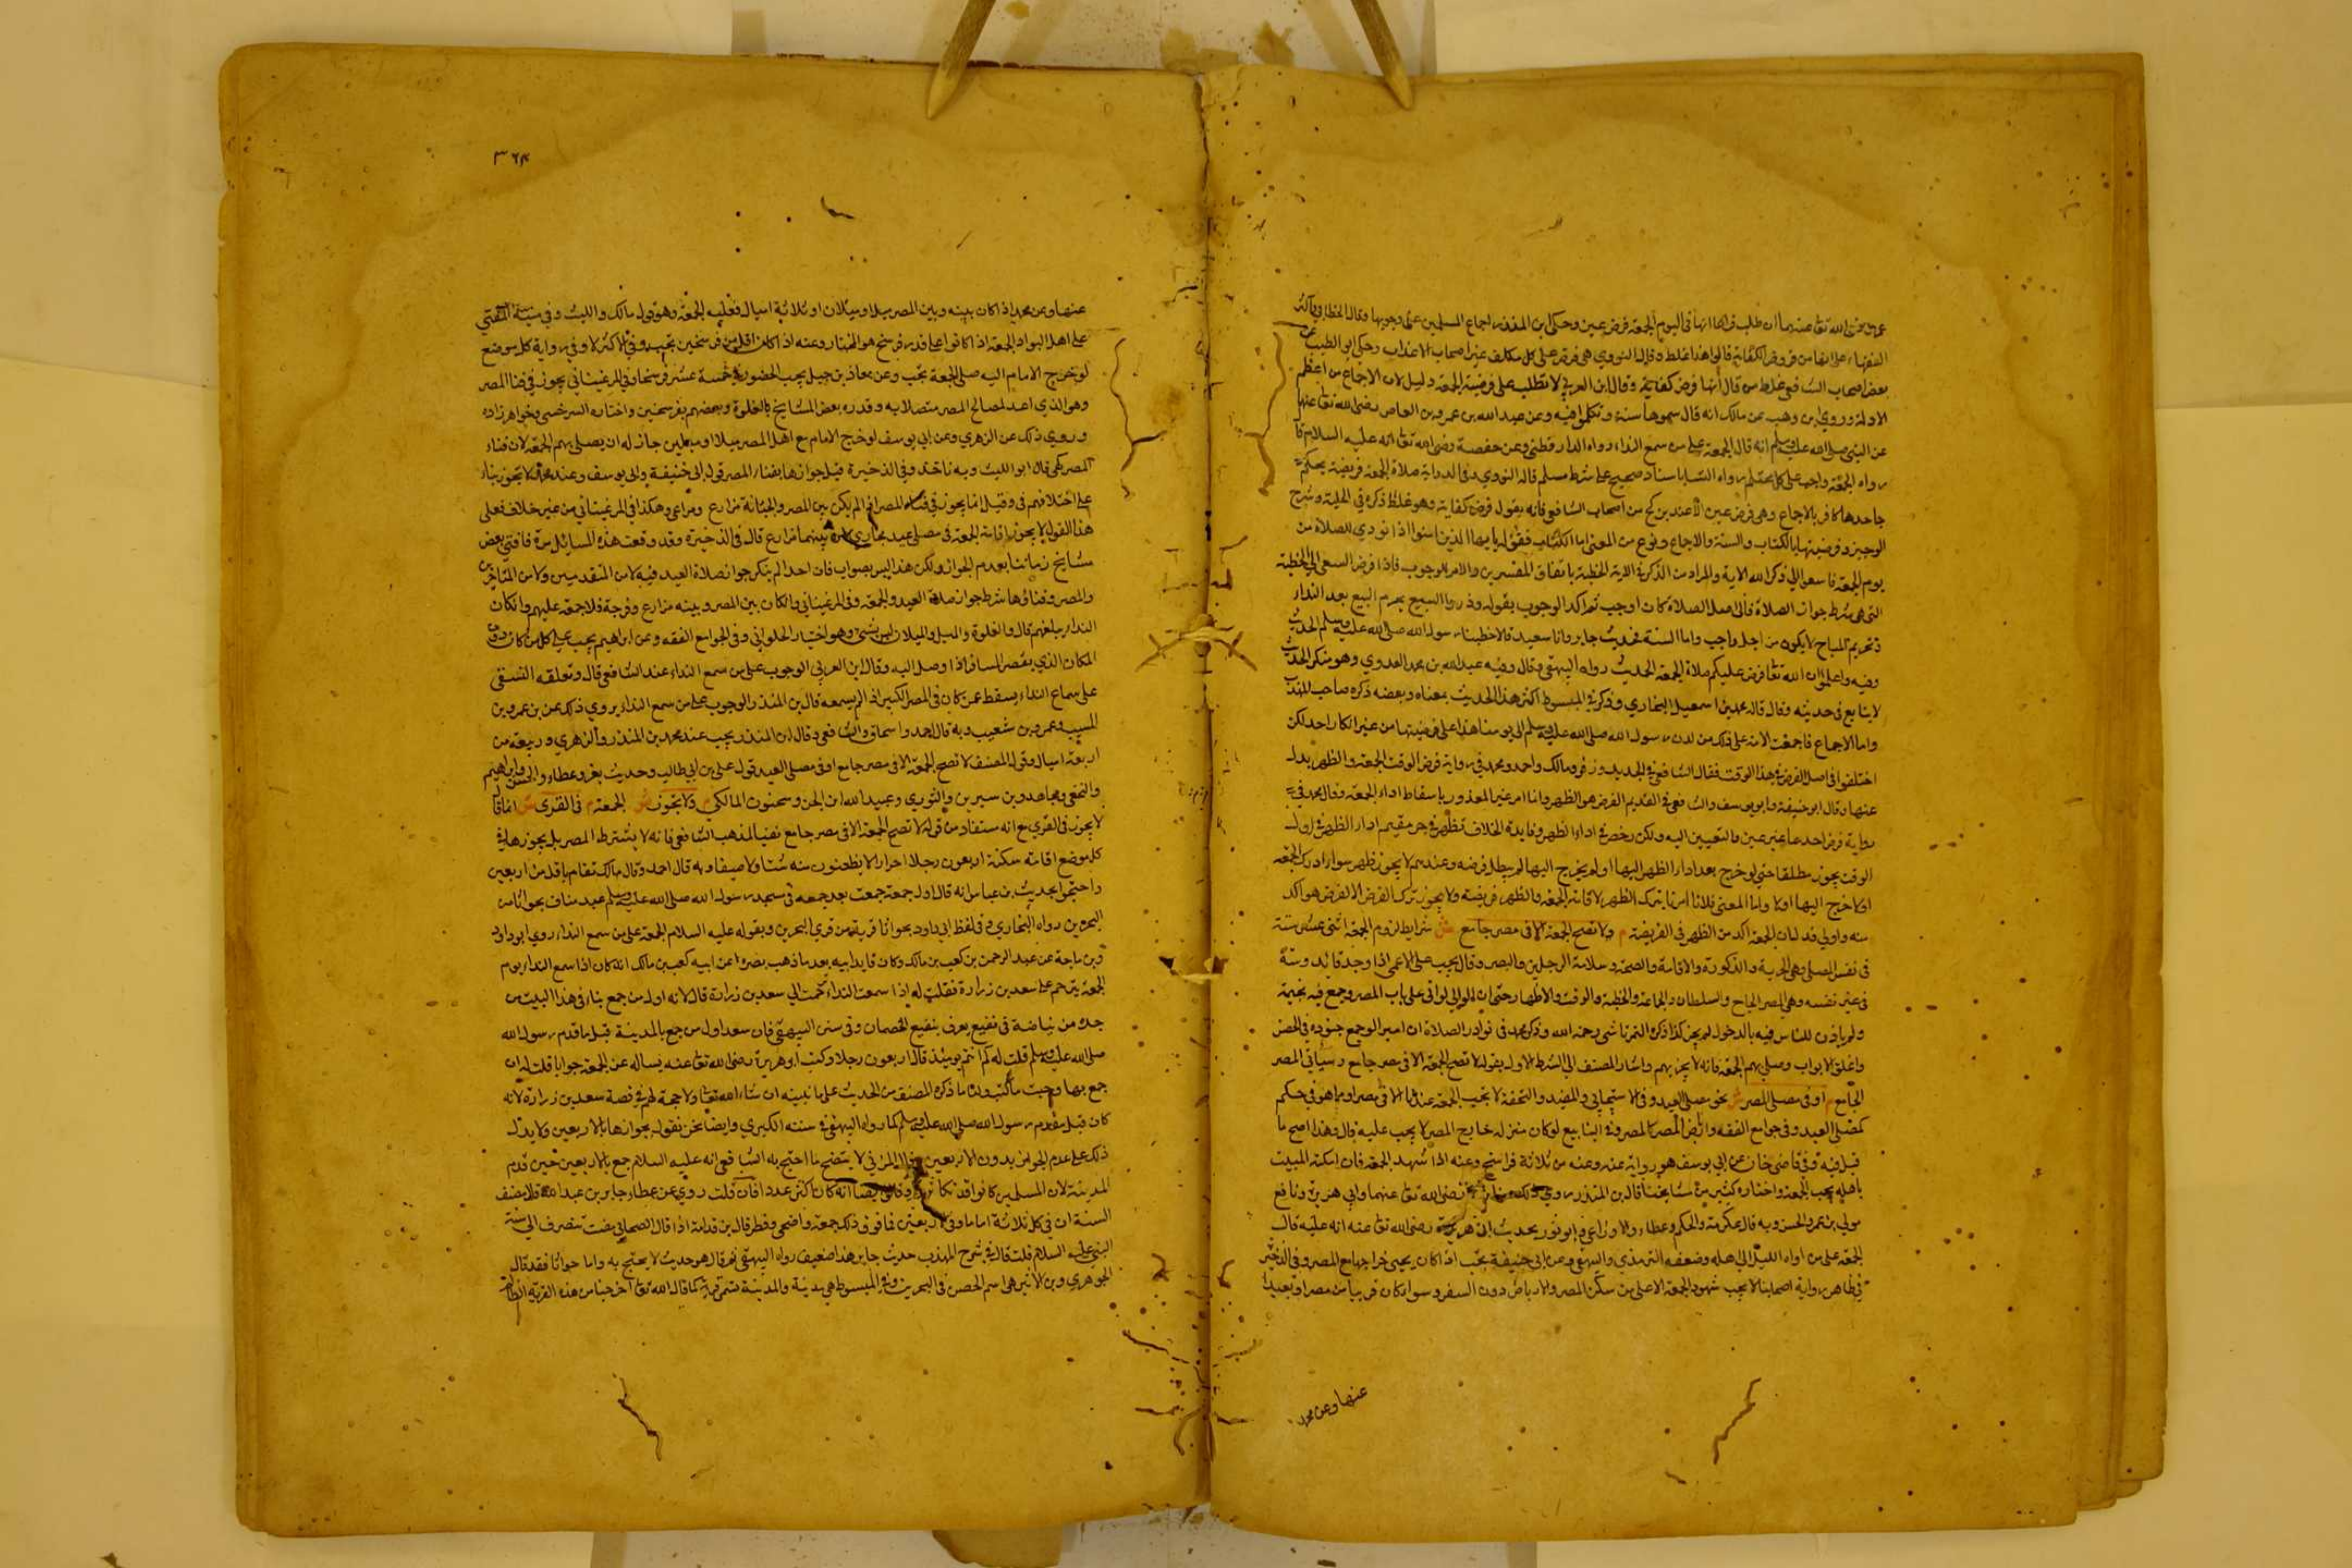 عمر رضى الله تعا عنهما ان طلب قراها انها فى اليوم الجمعة فرض عين وحكى ابن المنذر اجماع المسلمين على وجوبها وقال الخطابى واكثر
الفقهاء على انها من فروض الكفاية قالوا هذا غلط وقال النووي هى فرض على كل مكلف غير اصحاب الاعذاب وحكى ابو الطيب عن
بعض اصحاب الشافعى غلط من قال انها فرض كفاية وقال ابن العربي لا تطلب على فرضية الجمعة دليل لان الاجماع من اعظم
الادلة وروي ابن وهب عن مالك انه قال سموها سنة وتكلموا فيه وعن عبد الله بن عمرو بن العاص رضى الله تعا عنهم
عن النبى صلى الله عليه وسلم انه قال الجمعة على من سمع النداء رواه الدارقطنى وعن حفصة رضى الله تعا انه عليه السلام قا
رواه الجمعة واجب على كل محتلم رواه النسا باسناد صحيح على شرط مسلم قاله النووي وفى الدراية صلاة الجمعة فريضة محكمة
جاحدها كافر بالاجماع وهى فرض عين الا عند بن كج من اصحاب الشافعى فانه يقول فرض كفاية وهو غلط ذكره فى الحلية وشرح
الوجيز وفرضيتها بالكتاب والسنة والاجماع ونوع من المعنى اما الكتاب فقوله يا ايها الذين امنوا اذا نودي للصلاة من
يوم الجمعة فاسعوا الى ذكر الله الاية والمراد من الذكر فى الاية الخطبة باتفاق المفسرين والامر للوجوب فاذا فرض السعى الى الخطبة
التى هى شرط جواز الصلاة فالى اصل الصلاة كان اوجب ثم اكد الوجوب بقوله وذروا البيع بحرم البيع بعد النداء
وتحريم المباح لا يكون من اجل واجب واما السنة فحديث جابر وابا سعيد قالا خطبنا رسول الله صلى الله عليه وسلم الحديث
وفيه واعلموا ان الله تعا فرض عليكم صلاة الجمعة الحديث رواه البيهقى وقال وفيه عبد الله بن محمد العدوي وهو منكر الحديث
لا يتابع فى حديثه وقال قاله محمد بن اسمعيل البخاري وذكر فى المبسوط اكثر هذا الحديث بمعناه وبعضه ذكره صاحب المهذب
واما الاجماع فاجمعت الامة على ذلك من لدن رسول الله صلى الله عليه وسلم الى يومنا هذا على فرضيتها من غير انكار احد لكن
اختلفوا فى اصل الفرض فى هذا الوقت فقال الشافعى فى الجديد وزفر ومالك واحمد ومحمد فى رواية فرض الوقت الجمعة والظهر بدل
عنها وقال ابو حنيفة وابو يوسف والشافعى فى القديم الفرض هو الظهر وانما امر غير المعذور باسقاط اداء الجمعة وقال محمد فى
رواية فرض احدهما غير عين والتعيين اليه ولكن رخص فى اداء الظهر وفايدة الخلاف تظهر فى حر مقيم ادا الظهر فى اول
الوقت يجوز مطلقا حتى لو خرج بعد ادا الظهر اليها او لم يخرج اليها لم يبطل فرضه وعندهم لا يجوز ظهر سواء ادرك الجمعة
اولا خرج اليها اولا واما المعنى فلانا امرنا بترك الظهر لاقامة الجمعة والظهر فريضة ولا يجوز ترك الفرض الا لفرض هو اكد
منه واولى فدل ان الجمعة اكد من الظهر فى الفريضة م ولا تصح الجمعة الا فى مصر جامع ش شرايط لزوم الجمعة اثنى عشر ستة
فى نفس المصلى وهى الحرية والذكورة والاقامة والصحة وسلامة الرجلين والبصر وقال يجب على الاعمى اذا وجد قائد وستة
فى غير نفسه وهى المصر الجامع والسلطان والجماعة والخطبة والوقت والاظهار حتى ان الوالى لو اغلق على باب المصر وجمع فيه بخيمة
ولم ياذن للناس فيه بالدخول لم يجز كذا ذكره التمرتاشى رحمه الله وذكر محمد فى نوادر الصلاة ان امير الو جمع جنوده فى الحصن
واغلق الابواب وصلى بهم الجمعة فانه لا يجزيهم واشار المصنف الى الشرط الاول بقوله لا تصح الجمعة الا فى مصر جامع وسياتى المصر
الجامع م او فى مصلى المصر ش نحو مصلى العيد وفى الاسبيجابى والمفيد والتحفة لا تجب الجمعة عندنا الا فى مصر او ما هو فى حكم
كمصلى العيد وفى جوامع الفقه وارض المصر كالمصر وفى الينابيع لو كان منزله خارج المصر لا يجب عليه قال وهذا اصح ما
قيل فيه وفى قاضى خان عن ابى يوسف هو رواية عنه وعنه من ثلاثة فراسخ وعنه اذا شهد الجمعة فان امكنه المبيت
باهله يجب الجمعة واختاره كثير من مشايخنا قال بن المنذر روي ذلك عن ابن عمر رضى الله تعا عنهما وابى هريرة ونافع
مولى بن عمر والحسن وبه قال عكرمة والحكم وعطاء والاوزاعى وابو ثور بحديث ابى هريرة رضى الله تعا عنه انه عليه قال
الجمعة على من اواه الليل الى اهله وضعفه الترمذي والبيهقى وعن ابى حنيفة تجب اذا كان يجبى خراجها مع المصر وفى الذخير
فى ظاهر رواية اصحابنا لا يجب شهود الجمعة الا على من سكن المصر والارباض دون السفر وسوا كان قريبا من مصر او بعيدا
عنها وعن محمد
٣٦٤
عنها وعن محمد اذ كان بينه وبين المصر ميل او ميلان او ثلاثة اميال فعليه الجمعة وهو قول مالك والليث وفى منية المفتي
على اهل البواد الجمعة اذا كانوا على قدر فرسخ هو المختار وعنه اذا كان اقل من فرسخين تجب وفى الاكثر لا وفى رواية كل موضع
لو خرج الامام اليه صلى الجمعة تجب وعن معاذ بن جبل يجب الحضور من خمسة عشر فرسخا وفى المرغينانى يجوز فى فنا المصر
وهو الذي اعد لمصالح المصر متصلا به وقدره بعض المشايخ بالغلوة وبعضهم بفرسخين واختاره السرخسى وخواهر زاده
وروي ذلك عن الزهري وعن ابى يوسف لو خرج الامام مع اهل المصر ميلا او ميلين جاز له ان يصلى بهم الجمعة لان فناء
المصر كهى قال ابو الليث وبه ناخذ وفى الذخيرة قيل جوازها بفناء المصر قول ابى حنيفة وابى يوسف وعند محمد لا يجوز بناء
على اختلافهم فى وقيل انما يجوز فى فناء المصر اذ الم يكن بين المصر والجبانة مزارع ومراعى وهكذا فى المرغينانى من غير خلاف فعلى
هذا القول لا يجوز اقامة الجمعة فى مصلى عيد بخاري لان بينهما مزارع قال فى الذخيرة وقد وقعت هذه المسايل مرة فافتى بعض
مشايخ زماننا بعدم الجواز ولكن هذا ليس بصواب فان احدا لم ينكر جواز صلاة العيد فيه لا من المتقدمين ولا من المتاخرين
والمصر وفناؤها شرط جواز صلاة العيد والجمعة وفى المرغينانى وان كان بين المصر وبينه مزارع وفرجة فلا جمعة عليهم وان كان
النداء يبلغهم قال والغلوة والميل والميلان ليس بشئ وهو اختيار الحلوانى وفى الجوامع الفقه وعن ابراهيم يجب على كل من كان دون
المكان الذي يقصر المسافر اذا وصل اليه وقال ابن العربي الوجوب على من سمع النداء عند الشافعى قال وتعلقه السقى
على سماع النداء يسقط عمن كان فى المصر الكبير اذ الم يسمعه قال بن المنذر الوجوب على من سمع النداء يروي ذلك عن بن عمر وبن
المسيب وعمرو بن شعيب وبه قال احمد واسحاق والشافعى وقال ابن المنذر يجب عند محمد بن المنذر والزهري وربيعة من
اربعة اميال وقوله المصنف لا تصح الجمعة الا فى مصر جامع او فى مصلى العيد قول على بن ابى طالب وحديث بغرو عطاء والحسن وابراهيم
والنخعى ومجاهد وبن سيرين والثوري وعبيد الله ابن الحسن وسحنون المالكى م ولا تجوز ش الجمعة م فى القرى ش انما قا
لا يجوز فى القرى مع انه مستفاد من قوله لا تصح الجمعة الا فى مصر جامع نفيا لمذهب الشافعى فانه لا يشترط المصر بل يجوزها فى
كل موضع اقامة سكنه اربعون رجلا احرارا لا يظعنون منه شتا ولا صيفا وبه قال احمد وقال مالك تقام باقل من اربعين
واحتجوا بحديث بن عباس انه قال اول جمعة جمعت بعد جمعه فى مسجد رسول الله صلى الله عليه وسلم عبد مناف بجواثا من
البحرين رواه البخاري وفى لفظ ابى داود بجواثا قرية من قري البحرين وبقوله عليه السلام الجمعة على من سمع النداء روي ابو داود
وبن ماجة عن عبد الرحمن بن كعب بن مالك وكان قايد ابيه بعد ما ذهب بصره عن ابيه كعب بن مالك انه كان اذا سمع النداء يوم
الجمعة يترحم على سعد بن زرارة فقلت له اذا سمعت النداء ترحمت الى سعد بن زرارة قال لانه اول من جمع بنا فى هذا البيت من
جده من بياضة فى نقيع يعرف بنقيع الخصمان وفى سنن البيهقى فان سعدا اول من جمع بالمدينة قبل ما قدم رسول الله
صلى الله عليه وسلم قلت له كم انتم يومئذ قال اربعون رجلا وكتب ابو هريرة رضى الله تعا عنه يساله عن الجمعة جوابا قلت له ان
جمع بها وحيث ما كنتم ولنا ما ذكره المصنف من الحديث على ما نبينه ان شاء الله تعا ولا حجة لهم فى قصة سعد بن زرارة لانه
كان قبل مقدم رسول الله صلى الله عليه وسلم كما رواه البيهقى فى سننه الكبري وايضا نحن نقول بجوازها بالاربعين ولا يدل
ذلك على عدم الجواز بدون الاربعين المزنى لا يتضح ما احتج به الشافعى انه عليه السلام جمع بالاربعين حين قدم
المدينة لان المسلمين كانوا قد تكاثروا وقال ايضا انه كان اكثر عددا فان قلت روي عن عطاء جابر بن عبد الله فلا يضعف
السنة ان فى كل ثلاثة اماما وفى الاربعين فما فوق ذلك جمعة واضحى وفطر قال بن قدامة اذا قال الصحابى مضت تنصرف الى سنة
النبى عليه السلام قلت قال فى شرح المهذب حديث جابر هذا ضعيف رواه البيهقى ثم قال هو حديث لا يحتج به واما جواثا فقد قال
الجوهري وبن الاثير هى اسم الحصن فى البحرين وفى المبسوط هى مدينة والمدينة تسمى قرية كما قال الله تعا اخرجنا من هذه القرية الظالم